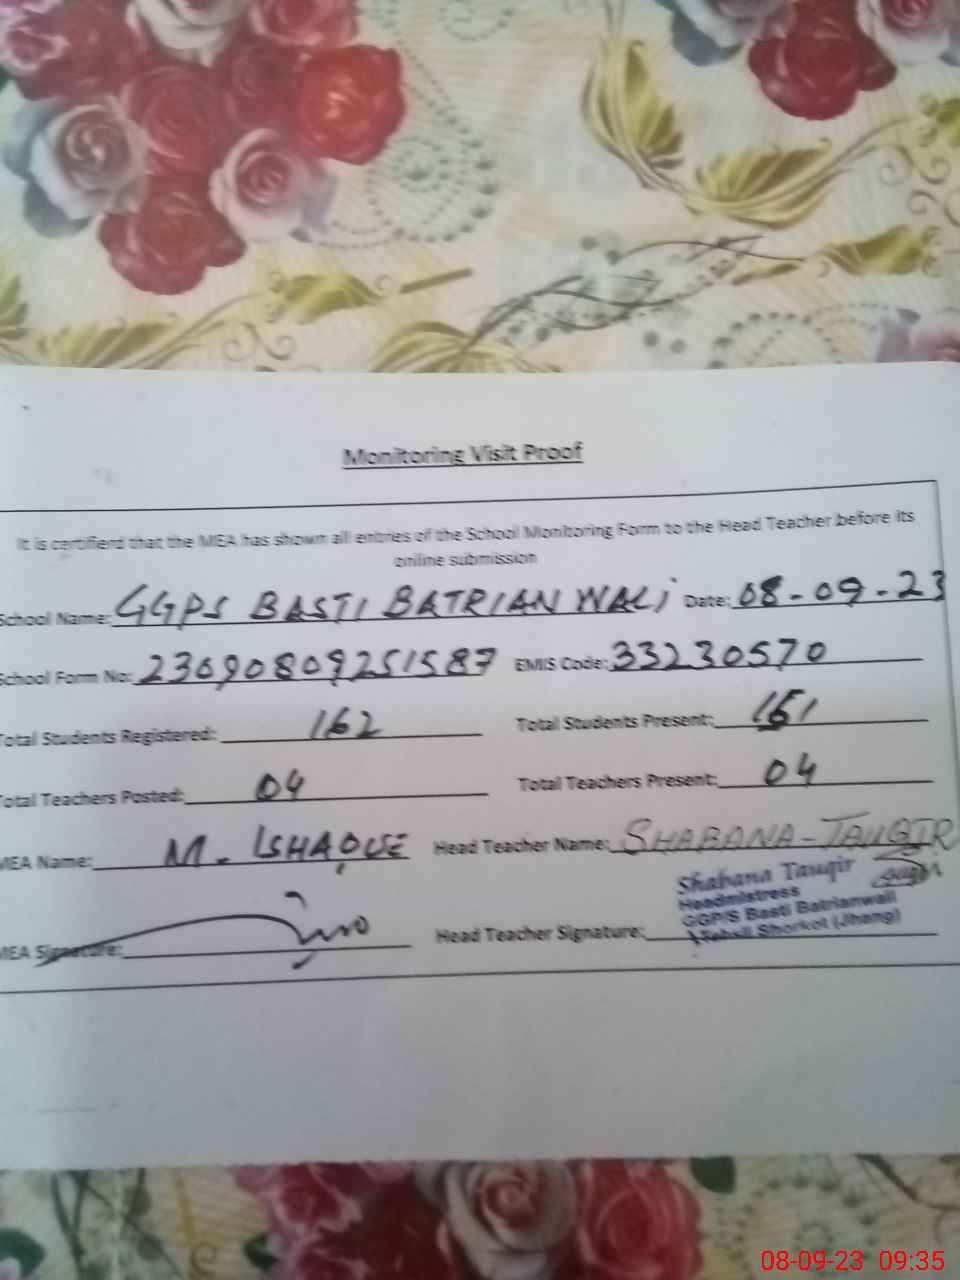 Monitoring Visit Proof
It is certifiend that the MEA has shown all entries of the School Monitoring Form to the Head Teacher before its
online submission
School Name: GGPS BASTI BATRIAN WALI Date: 08-09-23
School Form No: 23090809251587 EMIS Code: 33230570
Total Students Registered: 162 Total Students Present: 151
Total Teachers Posted: 04 Total Teachers Present: 04
MEA Name: M. ISHAQUE Head Teacher Name: SHABANA-TAUQIR
Shabana Tauqir
Headmistress
GGP/S Basti Batrianwali
Tehsil Shorkot (Jhang)
MEA Signature: Head Teacher Signature:
08-09-23 09:35